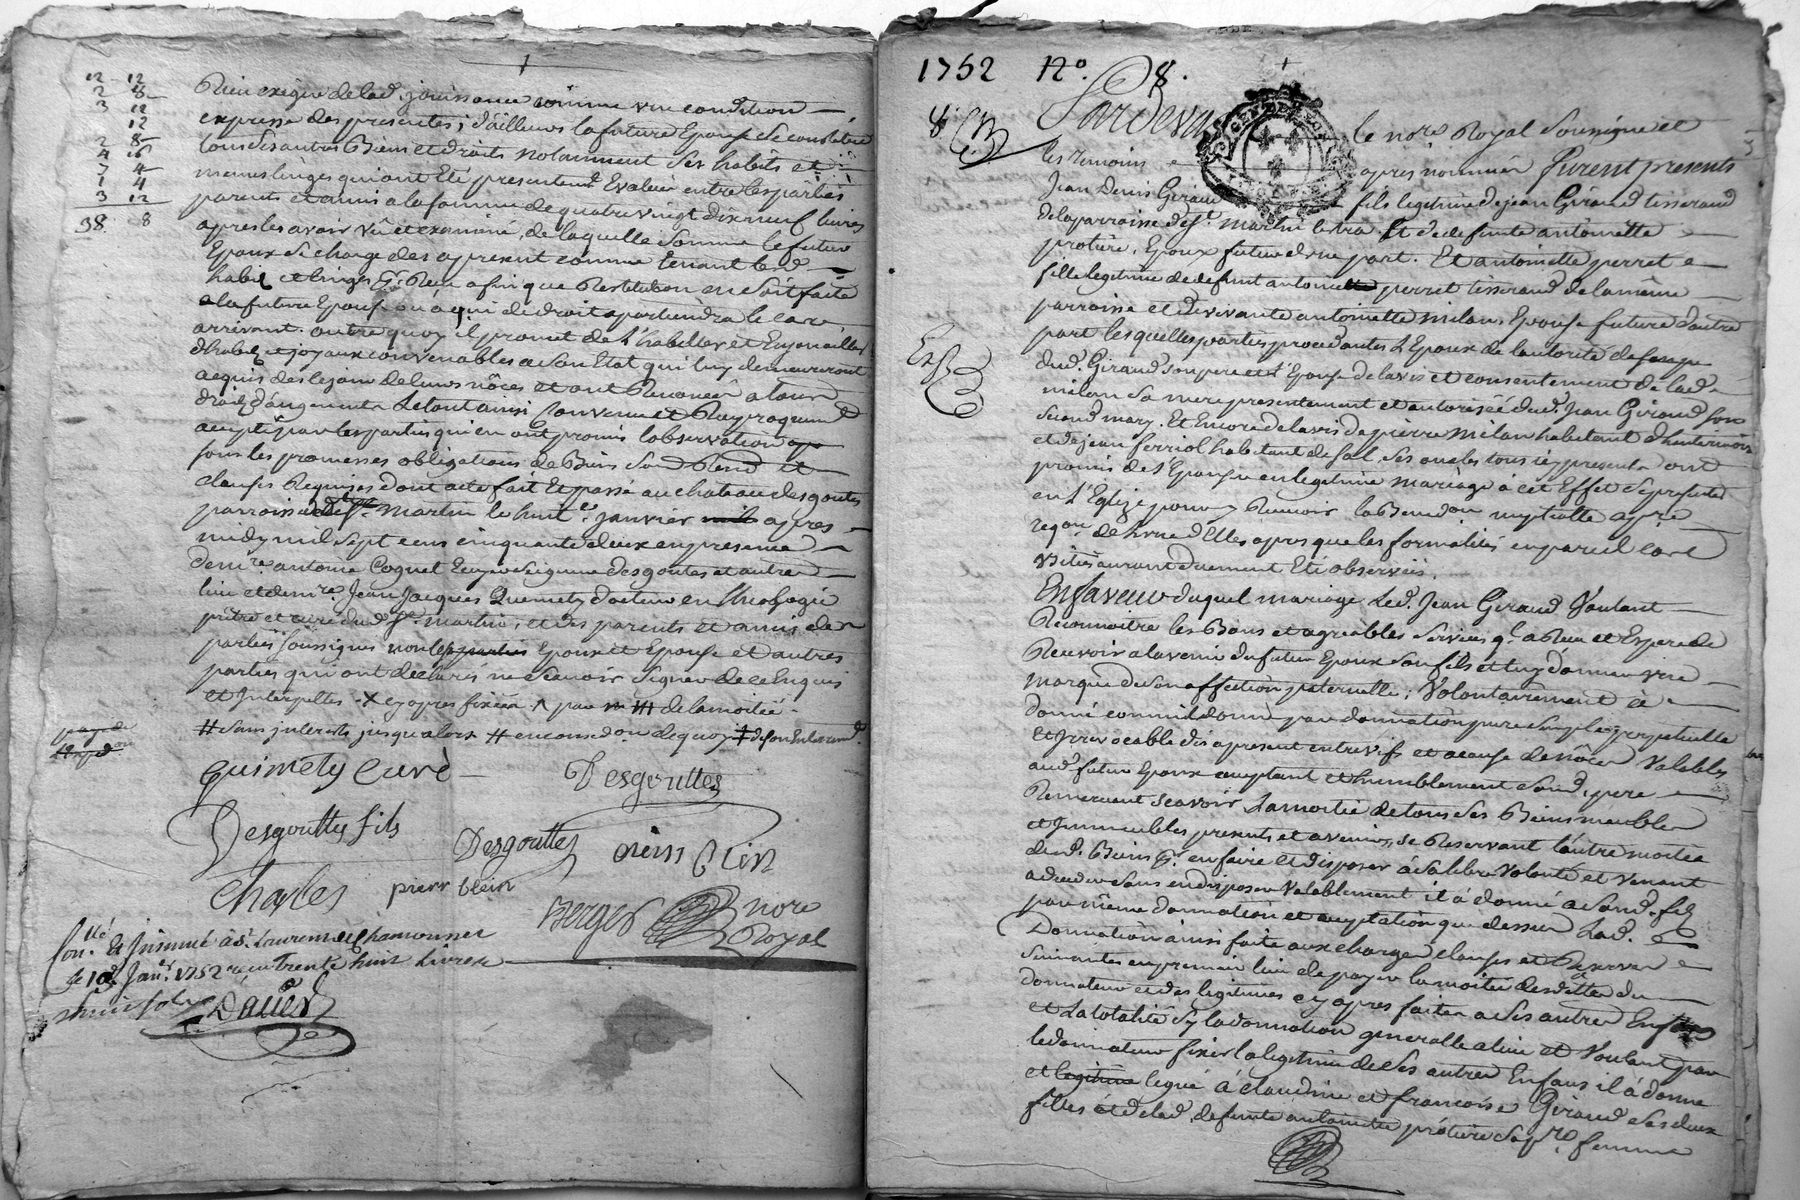 12 12
2 8
3 12
12
2 8
4 16
7 4
1 4
3 12
38 8
Rien exigée de lad. jouissance comme une condition
expresse des presentes ; d'ailleurs la future Epouse se constitue
tous ses autres Biens et droits notamment ses habits et
menus linges qui ont Eté presentemt. Evalués entre les parties
parents et amis a la somme de quatre vingt dix neuf livres
apres les avoir vû et examiné, de laquelle somme le futur
Epoux se charge des apresent comme tenant lesd.
habits et linges pr. Reçu afin que Restitution en soit faite
a la future Epouse ou a qui de droit apartiendra le cas
arrivant. outre quoy il promet de L'habiller et Enjoueiller
d'habits et joyaux convenables a son Etat qui luy demeureront
acquis des le jour de leurs nôces et ont Renoncé a tous
droits d'augments Le tout ainsi Convenu et Reciproquemt.
accepté par les parties qui en ont promis l'observation
sous les promesses obligations de Biens Soud. Rend. et
clauses Requises dont acte fait Et passé au chateau desgoutes
parroisse de St. Martin le huite. janvier apres
midy mil sept cens cinquante deux en presence
de mre. antoine Coquet Ecuyer seigneur desgoutes et autres
lieu et de mre. Jean Jacques Quimety docteur en theologie
prêtre et curé dud. St. martin, et des parents et amis des
parties soussignés non les parties Epoux et Epouse et autres
parties qui ont declarés ne Scavoir Signer de ce Enquis
et Interpellés . X cy apres fixées ^ par de la moitié .
# sans interests jusqu'alors # en consedon. de quoy ‡ de son
quimety Curé
Desgouttes
Desgouttes fils
Desgouttes
Charles
pierr blein
Berger nore
Royal
Conlé. Et Insinué à St. Laurent de Chamousset
le 19 Janr. 1752 reçu trente huit livres
huit sols
Dauier
1752 No. 8.
8e.
Pardevant le nore. Royal Soussigné et
les temoins apres nommés furent presents
Jean Denis Giraud fils legitime de jean Giraud tisserand
de la parroisse de St. Martin lestra Et de defunte antoinette
protiere, Epoux futur d'une part. Et antoinette perret
fille legitime de defunt antoine perret tisserand de la même
parroisse et de vivante antoinette milan, Epouse future d'autre
part lesquelles parties procedantes L'Epoux de l'autorité de
Exp.
dud. Giraud son pere et L'Epouse de l'avis et consentement de lad.
milan Sa mere presentement et autorisée dud. Jean Giraud son
second mary. Et Encore de l'avis de pierre milan habitant
et de jean ferriol habitant de sal, Ses oncles tous icy presents ont
promis de S'Epouser en legitime mariage à cet Effet Se presenter
en L'Eglise pour y Recevoir la Benedon. nuptialle apres
reqon. de l'une d'Elles apres que les formalités en pareil cas
usitées auront duement Eté observées.
En faveur duquel mariage Led. Jean Giraud Voulant
Reconnoitre les Bons et agreables services qu'il a Reçu et Espere de
Recevoir a l'avenir du futur Epoux Son fils et luy donner une
marque de Son affection paternelle ; Volontairement a
donné comme il donne par donnation pure simple perpetuelle
Et Irrevocable dès apresent entre vifs et a cause de nôces Valables
aud. futur Epoux acceptant et humblement Soud. pere
Remerciant scavoir La moitié de tous ses Biens meubles
et Immeubles presents et avenir, se Reservant l'autre moitié
desd. Biens pr. en faire et disposer à sa libre Volonté et venant
a deceder sans en disposer Valablement il a donné a Sond. fils
par même donnation et acceptation que dessus Lad.
Donnation ainsi faite aux charges clauses et Reserves
Suivantes en premier lieu de payer la moitié des dettes du
donnateur et des legitimes cy apres faites a Ses autres Enfans
et La totalité Sy la donnation generalle a lieu et Voulant par
le donnateur fixer la legitime de Ses autres Enfans il a donné
et legué à claudine et françoise Giraud ses deux
filles et de lad. defunte antoinette protiere Sa pre. femme